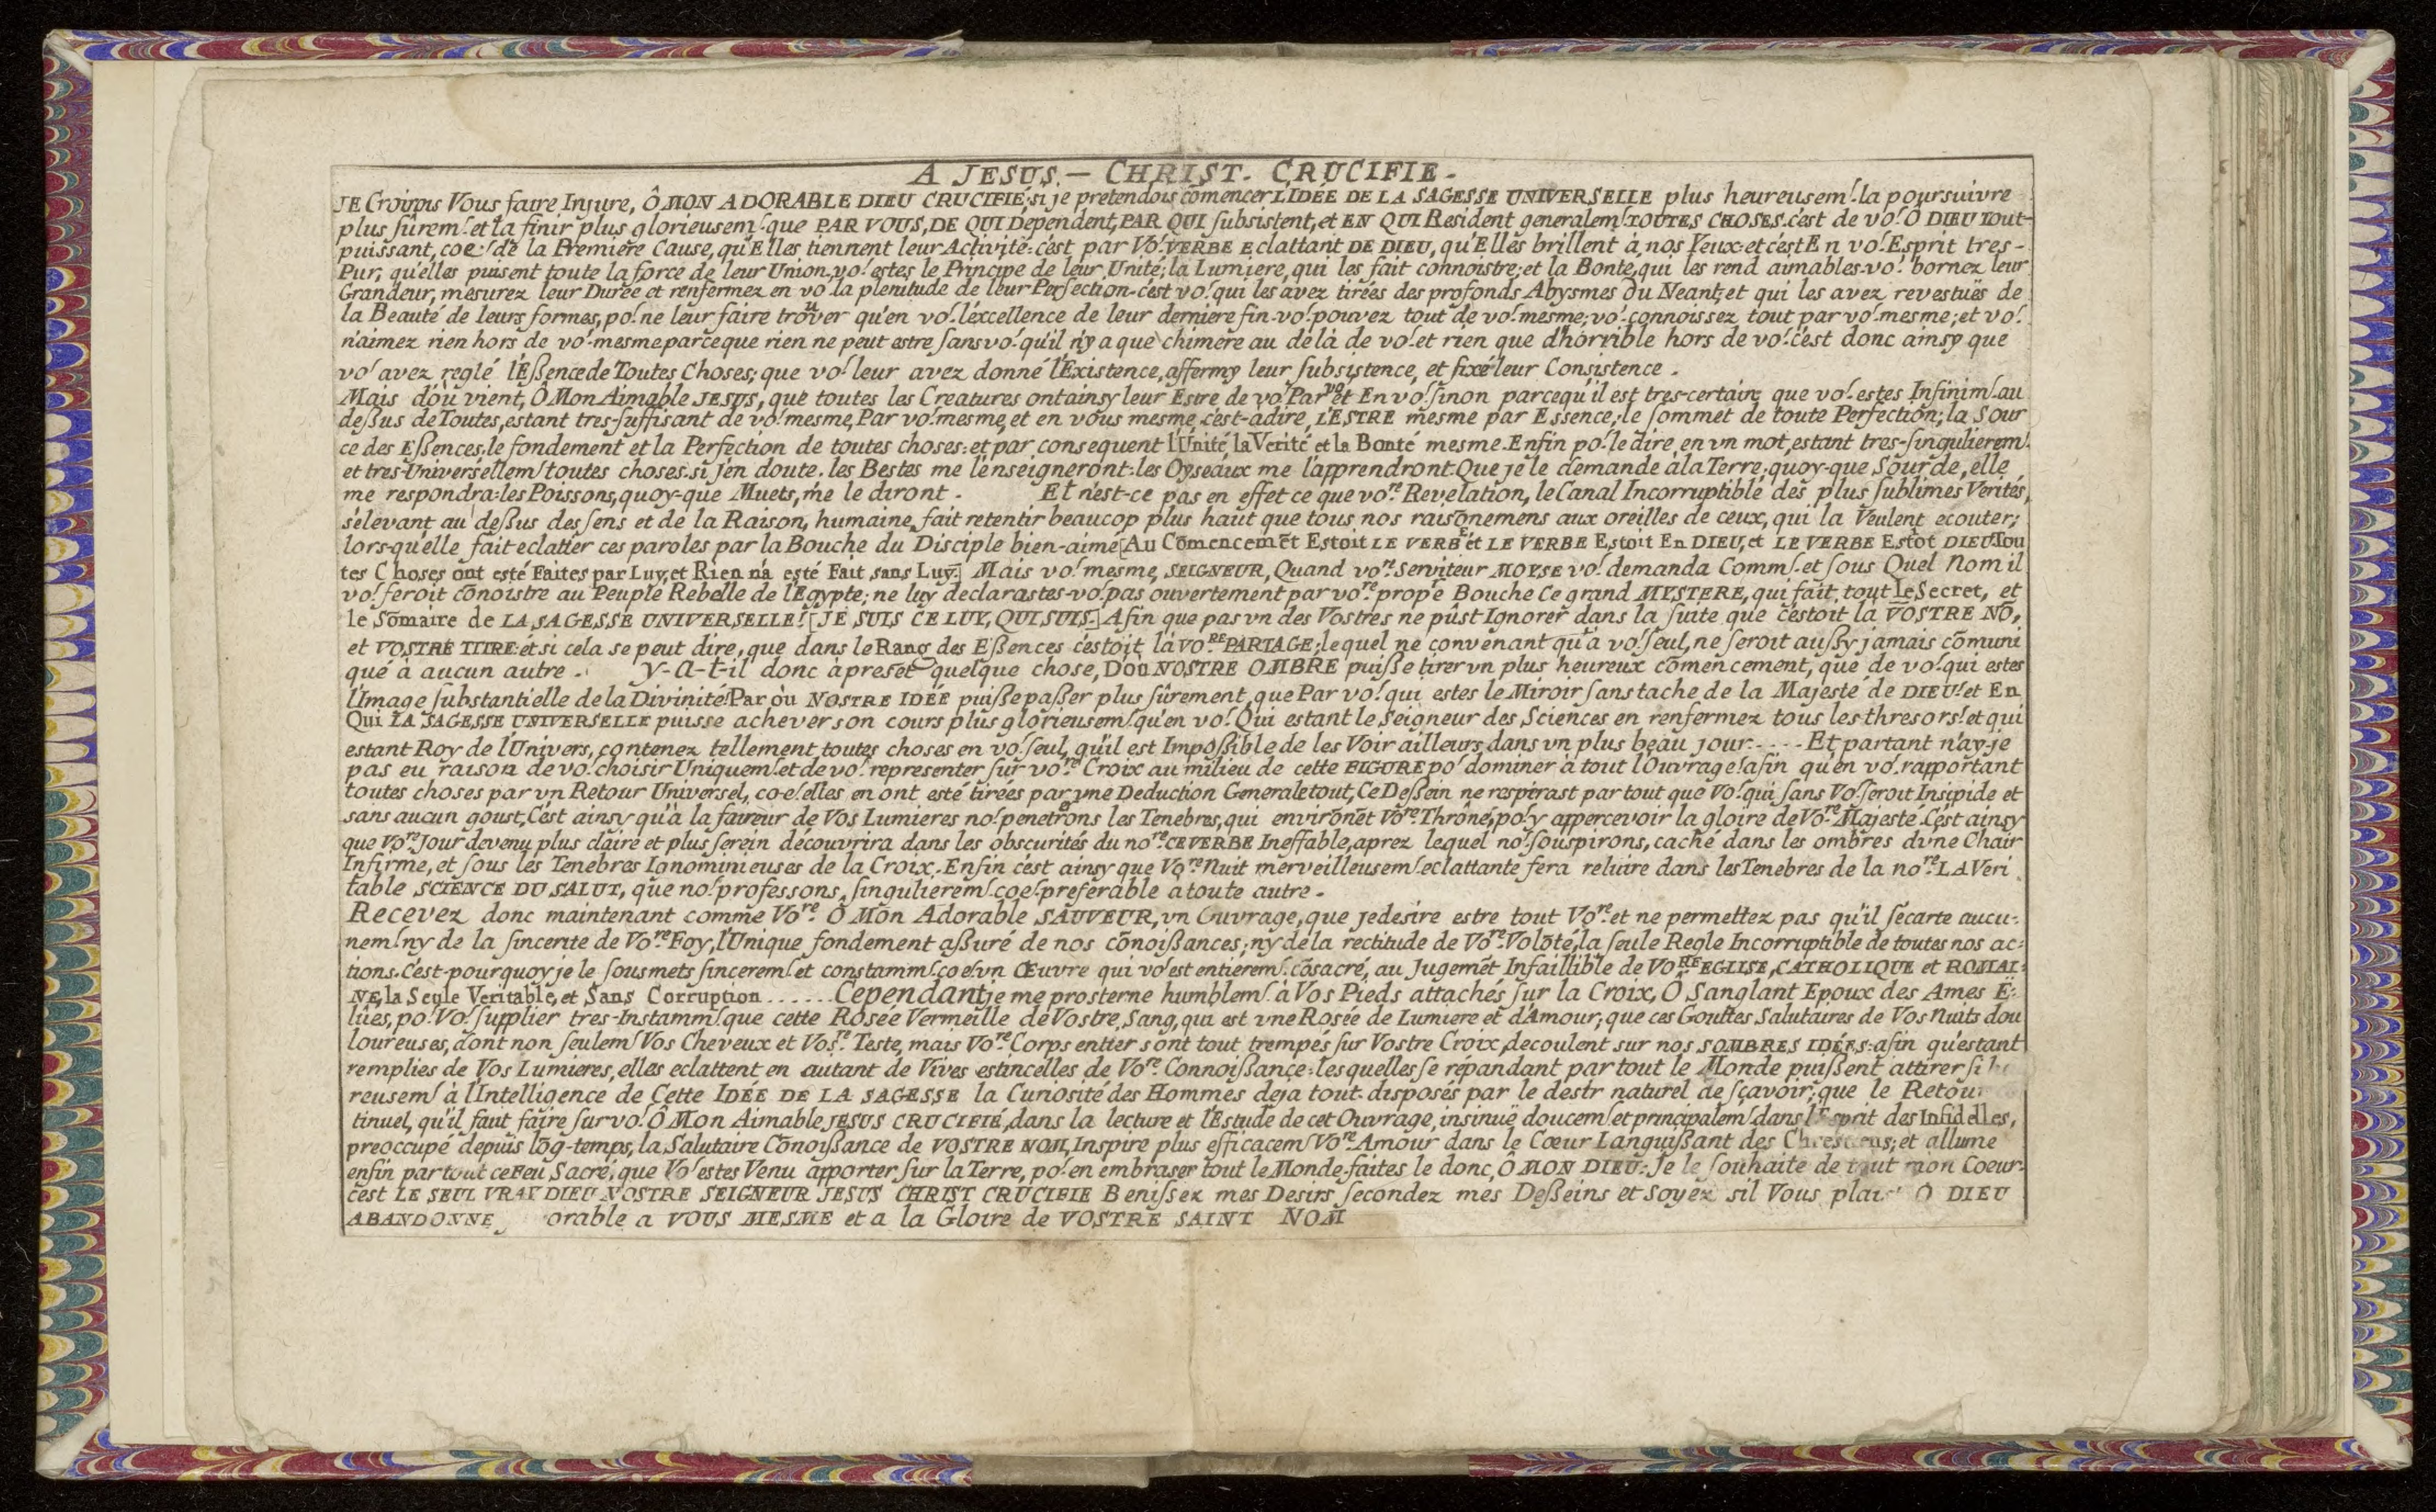 A JESUS.— CHRIST. CRUCIFIE.
JE Croirois Vous faire Injure, Ô MON ADORABLE DIEU CRUCIFIÉ; si je pretendois cōmencer L'IDÉE DE LA SAGESSE UNIVERSELLE plus heureusemt. la poursuivre
plus sûremt. et la finir plus glorieusemt. que PAR VOUS, DE QUI Dependent, PAR QUI subsistent, et EN QUI Resident generalemt. TOUTES CHOSES. c'est de vos. Ô DIEU Tout-
puissant, coe. de la Premiere Cause, qu'Elles tiennent leur Activité: c'est par Vos. VERBE Eclattant DE DIEU, qu'Elles brillent à nos Yeux: et c'est En vos. Esprit tres-
Pur, qu'elles puisent toute la force de leur Union. vos. estes le Principe de leur Unité; la Lumiere, qui les fait connoistre; et la Bonté, qui les rend aimables. vos. bornez leur
Grandeur, mesurez leur Durée et renfermez en vos. la plenitude de leur Perfection. c'est vos. qui les avez tirées des profonds Abysmes du Neant; et qui les avez revestuës de
la Beauté de leurs formes, por. ne leur faire trouver qu'en vos. l'éxcellence de leur derniere fin. vos. pouvez tout de vos. mesme; vos. connoissez tout par vos. mesme; et vos.
n'aimez rien hors de vos. mesme parceque rien ne peut estre sans vos. qu'il n'y a que chimere au delà de vos. et rien que d'horrible hors de vos. c'est donc ainsy que
vos. avez reglé l'Eßence de Toutes Choses; que vos. leur avez donné l'Existence, affermy leur subsistence, et fixé leur Consistence.
Mais d'où vient, Ô Mon Aimable JESUS, que toutes les Creatures ont ainsy leur Estre de vos. Par vos. et En vos. sinon parcequ'il est tres-certain; que vos. estes Infinimt. au
deßus de Toutes, estant tres-suffisant de vos. mesme, Par vos. mesme, et en vous mesme, c'est-adire, L'ESTRE mesme par Essence; le sommet de toute Perfection; la Sour
ce des Eßences; le fondement et la Perfection de toutes choses: et par consequent l'Unité, la Verité et la Bonté mesme. Enfin por. le dire en vn mot, estant tres-singulieremt.
et tres-Universellemt. toutes choses. si j'en doute. les Bestes me l'enseigneront: les Oyseaux me l'apprendront. Que je le demande à la Terre; quoy-que Sourde, elle
me respondra: les Poissons, quoy-que Muets, me le diront. Et n'est-ce pas en effet ce que vore. Revelation, le Canal Incorruptible des plus sublimes Verités,
s'elevant au deßus des sens et de la Raison, humaine, fait retentir beaucop plus haut que tous nos raisōnemens aux oreilles de ceux, qui la Veulent ecouter;
lors-qu'elle fait eclatter ces paroles par la Bouche du Disciple bien-aimé [Au Cōmencemēt Estoit LE VERBE et LE VERBE Estoit En DIEU, et LE VERBE Estot DIEU. Tou
tes Choses ont esté Faites par Luy, et Rien n'a esté Fait sans Luy.] Mais vos. mesme, SEIGNEUR, Quand vore. Serviteur MOYSE vos. demanda Commt. et sous Quel Nom il
vos. feroit cōnoistre au Peuple Rebelle de l'Egypte; ne luy declarastes-vos. pas ouvertement par vore. propre Bouche Ce grand MYSTERE, qui fait tout le Secret, et
le Sōmaire de LA SAGESSE UNIVERSELLE? [JE SUIS CELUY, QUI SUIS.] Afin que pas vn des Vostres ne pûst Ignorer dans la suite que c'estoit la VOSTRE NŌ,
et VOSTRE TITRE: et si cela se peut dire, que dans le Rang des Eßences c'estoit là VORE PARTAGE; lequel ne convenant qu'à vos. seul, ne seroit außy jamais cōmuni
qué à aucun autre. Y-a-t-il donc àpresēt quelque chose, Doù NOSTRE OMBRE puiße tirer vn plus heureux cōmencement, que de vos. qui estes
l'Image substantielle de la Divinité? Par où NOSTRE IDÉE puiße paßer plus sûrement que Par vos. qui estes le Miroir sans tache de la Majesté de DIEU? et En
Qui LA SAGESSE UNIVERSELLE puisse achever son cours plus glorieusemt. qu'en vos. Qui estant le Seigneur des Sciences en renfermez tous les thresors? et qui
estant Roy de l'Univers, contenez tellement toutes choses en vos. seul, qu'il est Impoßible de les Voir ailleurs dans vn plus beau jour. - - - - Et partant n'ay-je
pas eu raison de vos. choisir Uniquemt. et de vos. representer sur vore. Croix au milieu de cette FIGURE por. dominer à tout l'Ouvrage? afin qu'en vos. rapportant
toutes choses par vn Retour Universel, co-e. elles en ont esté tirées par vne Deduction Generale tout, Ce Deßein ne respirast par tout que Vos. qui sans Vos. seroit Insipide et
sans aucun goust, C'est ainsy qu'à la faveur de Vos Lumieres nos. penetrōns les Tenebres, qui environēt Vore. Thrône, por. y appercevoir la gloire de Vore. Majesté. C'est ainsy
que Vore. Jour devenu plus claire et plus serein découvrira dans les obscurités du nore. CE VERBE Ineffable, aprez lequel nos. souspirons, caché dans les ombres d'vne Chair
Infirme, et sous les Tenebres Ignominieuses de la Croix. Enfin c'est ainsy que Vore. Nuit merveilleusemt. eclattante fera reluire dans les Tenebres de la nore. LA Veri
table SCIENCE DU SALUT, que nos. professons, singulieremt. coe. preferable à toute autre.
Recevez donc maintenant comme Vore. Ô Mon Adorable SAUVEUR, vn Ouvrage, que je desire estre tout Vore. et ne permettez pas qu'il s'ecarte aucu-
nemt. ny de la sincerite de Vore. Foy, l'Unique fondement aßuré de nos cōnoißances; ny de la rectitude de Vore. Volōté, la seule Regle Incorruptible de toutes nos ac-
tions. C'est-pourquoy je le sousmets sinceremt. et constammt. coe. vn Œuvre qui vos. est entieremt. cōsacré, au Jugemēt Infaillible de VORE EGLISE, CATHOLIQUE et ROMAI-
NE, la Seule Veritable, et Sans Corruption ...... Cependant je me prosterne humblemt. à Vos Pieds attachés sur la Croix, Ô Sanglant Epoux des Ames E-
lües, por. Vos. supplier tres-Instammt. que cette Rosée Vermeille de Vostre Sang, qui est vne Rosée de Lumiere et d'Amour; que ces Gouttes Salutaires de Vos Nuits dou
loureuses, dont non seulemt. Vos Cheveux et Vosre. Teste, mais Vore. Corps entier sont tout trempés sur Vostre Croix, decoulent sur nos SOMBRES IDÉES: afin qu'estant
remplies de Vos Lumieres, elles eclattent en autant de Vives estincelles de Vore. Connoißance: lesquelles se répandant par tout le Monde puißent attirer si
reusemt. à l'Intelligence de Cette IDÉE DE LA SAGESSE la Curiosité des Hommes deja tout disposés par le desir naturel de sçavoir; que le Retour
tinuel, qu'il faut faire sur vos. Ô Mon Aimable JESUS CRUCIFIÉ, dans la lecture et l'Estude de cet Ouvrage, insinuë doucemt. et principalemt. dans l'Esprit des Infidelles,
preoccupé depuis lōg-temps, la Salutaire Cōnoißance de VOSTRE NOM, Inspire plus efficacemt. Vore. Amour dans le Cœur Languißant des Chrestiens; et allume
enfin par tout ce Feu Sacré, que Vos. estes Venu apporter sur la Terre, por. en embraser tout le Monde. faites le donc, Ô MON DIEU: Je le souhaite de tout mon Coeur.
c'est LE SEUL VRAY DIEU NOSTRE SEIGNEUR JESUS CHRIST CRUCIFIE Benissez mes Desirs secondez mes Deßeins et Soyez sil Vous plaist Ô DIEU
ABANDONNE orable a VOUS MESME et a la Gloire de VOSTRE SAINT NOM